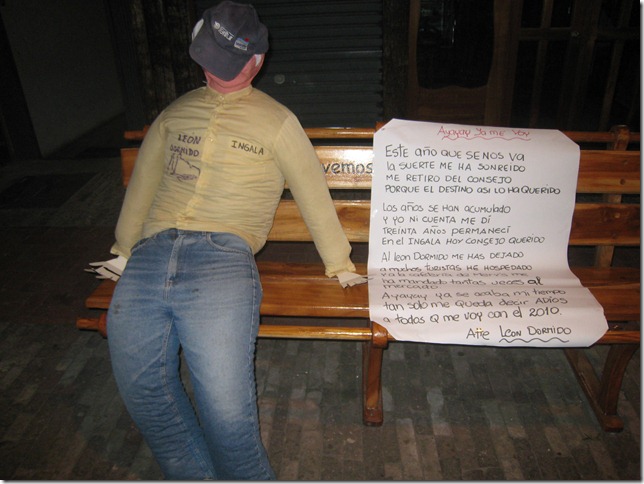 LEON
DORMIDO
INGALA
vemos
Ayayay ya me voy
Este año que se nos va
la suerte me ha sonreido
me retiro del consejo
porque el destino asi lo ha querido
Los años se han acumulado
y yo ni cuenta me dí
treinta años permanecí
En el INGALA hoy consejo querido
Al leon Dormido me has dejado
a muchos turistas he hospedado
ha mandado tantas veces al
mercado
Ayayay ya se acaba mi tiempo
tan solo me queda decir ADIOS
a todos Q me voy con el 2010.
Att: Leon Dormido